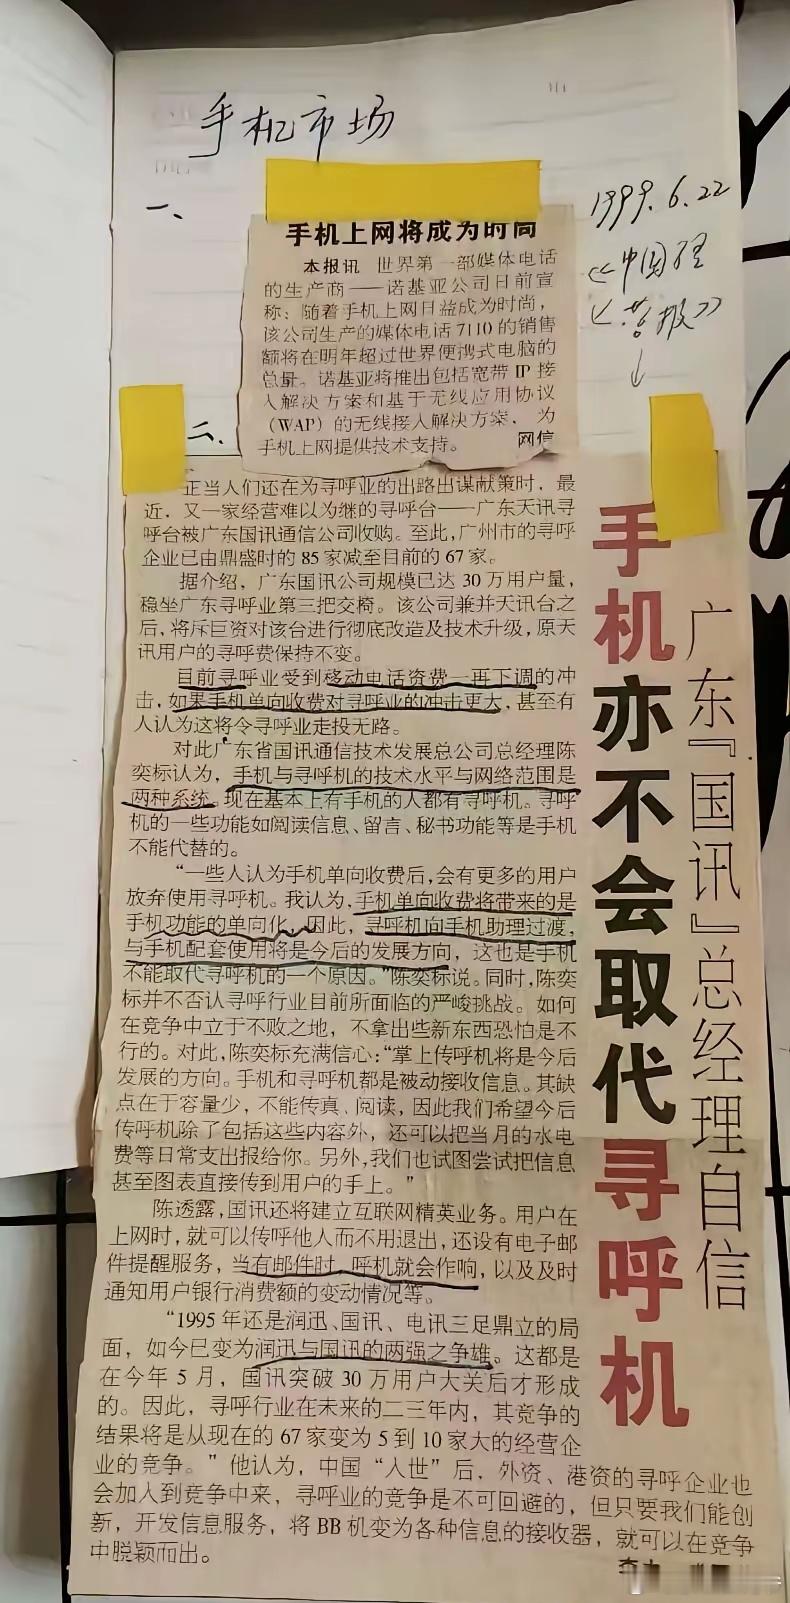 手机市场
一、
1999.6.22
《中国经
营报》
手机上网将成为时尚
本报讯 世界第一部媒体电话
的生产商——诺基亚公司日前宣
称：随着手机上网日益成为时尚，
该公司生产的媒体电话 7110 的销售
额将在明年超过世界便携式电脑的
总量。诺基亚将推出包括宽带 IP 接
入解决方案和基于无线应用协议
（WAP）的无线接入解决方案，为
手机上网提供技术支持。 网信
二、
正当人们还在为寻呼业的出路出谋献策时，最
近，又一家经营难以为继的寻呼台——广东天讯寻
呼台被广东国讯通信公司收购。至此，广州市的寻呼
企业已由鼎盛时的 85 家减至目前的 67 家。
据介绍，广东国讯公司规模已达 30 万用户量，
稳坐广东寻呼业第三把交椅。该公司兼并天讯台之
后，将斥巨资对该台进行彻底改造及技术升级，原天
讯用户的寻呼费保持不变。
目前寻呼业受到移动电话资费一再下调的冲
击，如果手机单向收费对寻呼业的冲击更大，甚至有
人认为这将令寻呼业走投无路。
对此广东省国讯通信技术发展总公司总经理陈
奕标认为，手机与寻呼机的技术水平与网络范围是
两种系统。现在基本上有手机的人都有寻呼机。寻呼
机的一些功能如阅读信息、留言、秘书功能等是手机
不能代替的。
“一些人认为手机单向收费后，会有更多的用户
放弃使用寻呼机。我认为，手机单向收费将带来的是
手机功能的单向化，因此，寻呼机向手机助理过渡，
与手机配套使用将是今后的发展方向，这也是手机
不能取代寻呼机的一个原因。”陈奕标说。同时，陈奕
标并不否认寻呼行业目前所面临的严峻挑战。如何
在竞争中立于不败之地，不拿出些新东西恐怕是不
行的。对此，陈奕标充满信心：“掌上传呼机将是今后
发展的方向。手机和寻呼机都是被动接收信息。其缺
点在于容量少，不能传真、阅读，因此我们希望今后
传呼机除了包括这些内容外，还可以把当月的水电
费等日常支出报给你。另外，我们也试图尝试把信息
甚至图表直接传到用户的手上。”
陈透露，国讯还将建立互联网精英业务。用户在
上网时，就可以传呼他人而不用退出，还设有电子邮
件提醒服务，当有邮件时，呼机就会作响，以及及时
通知用户银行消费额的变动情况等。
“1995 年还是润迅、国讯、电讯三足鼎立的局
面，如今已变为润迅与国讯的两强之争雄。这都是
在今年 5 月，国讯突破 30 万用户大关后才形成
的。因此，寻呼行业在未来的二三年内，其竞争的
结果将是从现在的 67 家变为 5 到 10 家大的经营企
业的竞争。”他认为，中国“入世”后，外资、港资的寻呼企业也
会加入到竞争中来，寻呼业的竞争是不可回避的，但只要我们能创
新，开发信息服务，将 BB 机变为各种信息的接收器，就可以在竞争
中脱颖而出。
广东『国讯』总经理自信
手机亦不会取代寻呼机